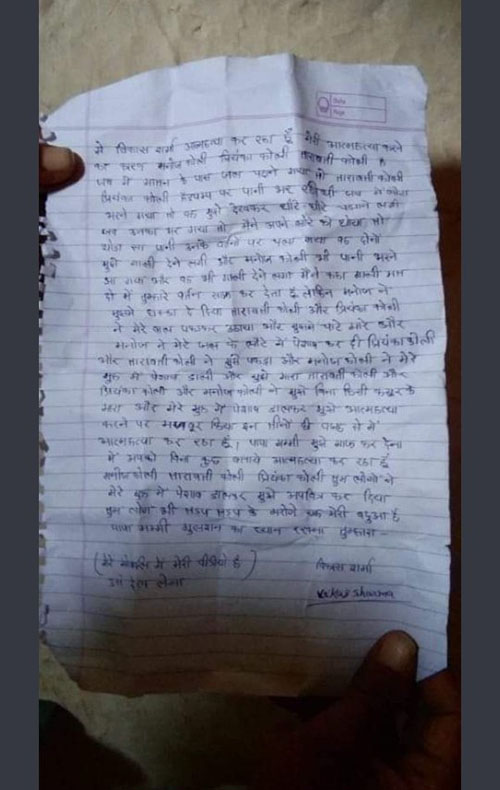 Date
Page
मे विकास शर्मा आत्महत्या कर रहा हूँ मेरी आत्महत्या करने
का कारण मनोज कोली प्रियंका कोली तारावती कोली है
जब में पास जल भरने गया तो तारावती कोली
प्रियंका कोली हैडपम्प पर पानी भर रही थी जब में
भरने गया तो वह मुझे देखकर धीरे धीरे चलाने लगी
जब उनका भर गया तो मैने अपने पैर धोया तो
थोडा सा पानी उनके बर्तन पर चला गया वह दोनो
मुझे गाली देने लगी और मनोज कोली भी पानी भरने
आ गया और वह भी गाली देने लगा मैने कहा गाली मत
दो में तुम्हारे बर्तन साफ कर देता हूँ लेकिन मनोज ने
मुझमे धक्का दे दिया तारावती कोली और प्रियंका कोली
ने मेरे बाल पकडकर उठाया और मारे और
मनोज ने मेरे जल के लोटे में पेशाब कर दी प्रियंका कोली
और तारावती कोली ने मुझे पकडा और मनोज कोली ने मेरे
मुह में पेशाब डाली और मुझे मारा तारावती कोली और
प्रियंका कोली और मनोज कोली ने मुझे बिना किसी कसूर के
मारा और मेरे मुह में पेशाब डालकर मुझे आत्महत्या
करने पर मजबूर किया इन तीनों की वजह से में
आत्महत्या कर रहा हूँ। पापा मम्मी मुझे माफ कर देना
में आपको बिना कुछ बताये आत्महत्या कर रहा हूँ
मनोज कोली तारावती कोली प्रियंका कोली तुम लोगो ने
मेरे मुह में पेशाब डालकर मुझे अपवित्र कर दिया
तुम लोग भी तडप तडप के मरोगे यह मेरी बद्दुआ है
पापा मम्मी गुलशन का ध्यान रखना तुम्हारा -
(मेरे मोबाईल में मेरी वीडियो है) विकास शर्मा
उसे देख लेना Vikas Sharma